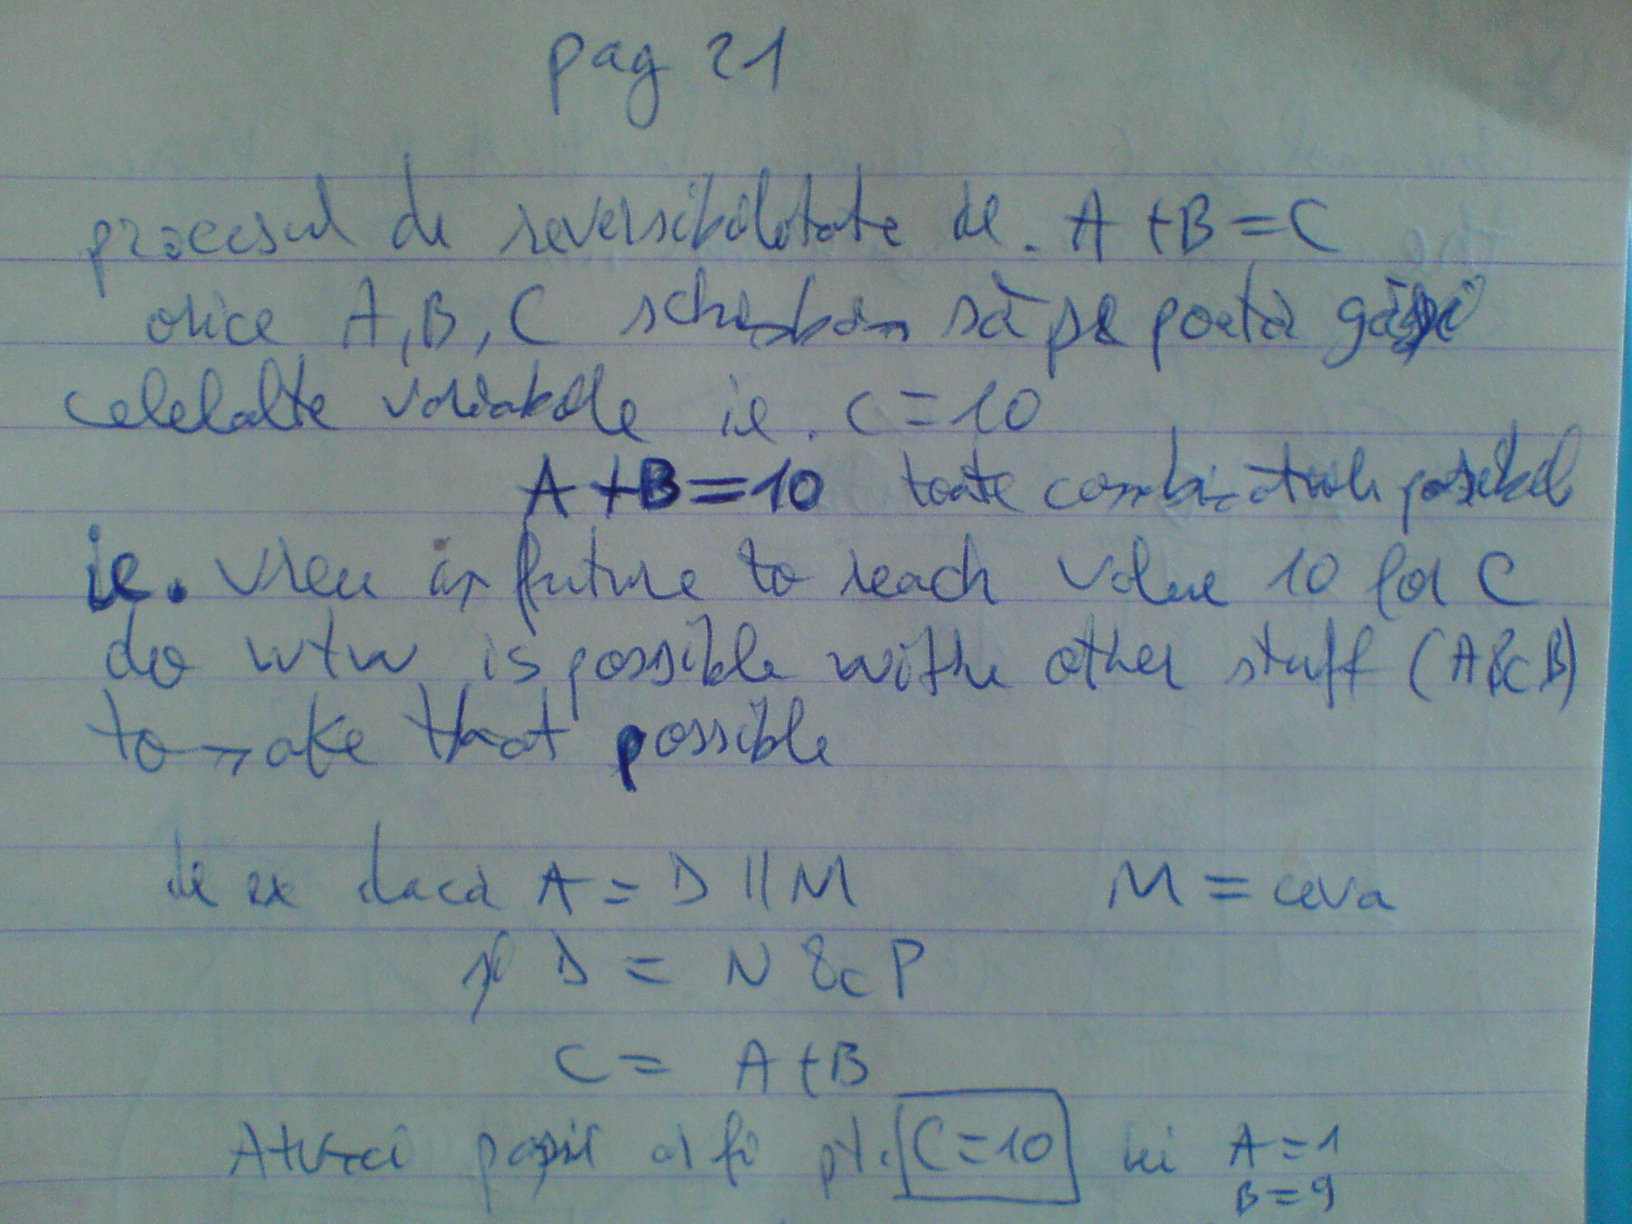 pag 21
procesul de reversibilitate de. A+B=C
orice A,B,C schimbăm să se poată găsi
celelalte variabile ie. C=10
A+B=10 toate combinațiile posibile
ie. vreu in future to reach value 10 for C
do wtw is possible withe other stuff (A&B)
to make that possible
de ex dacă A = D || M M = ceva
și D = N & P
C = A+B
Atunci pașii ar fi pt. C=10 A=1
B=9